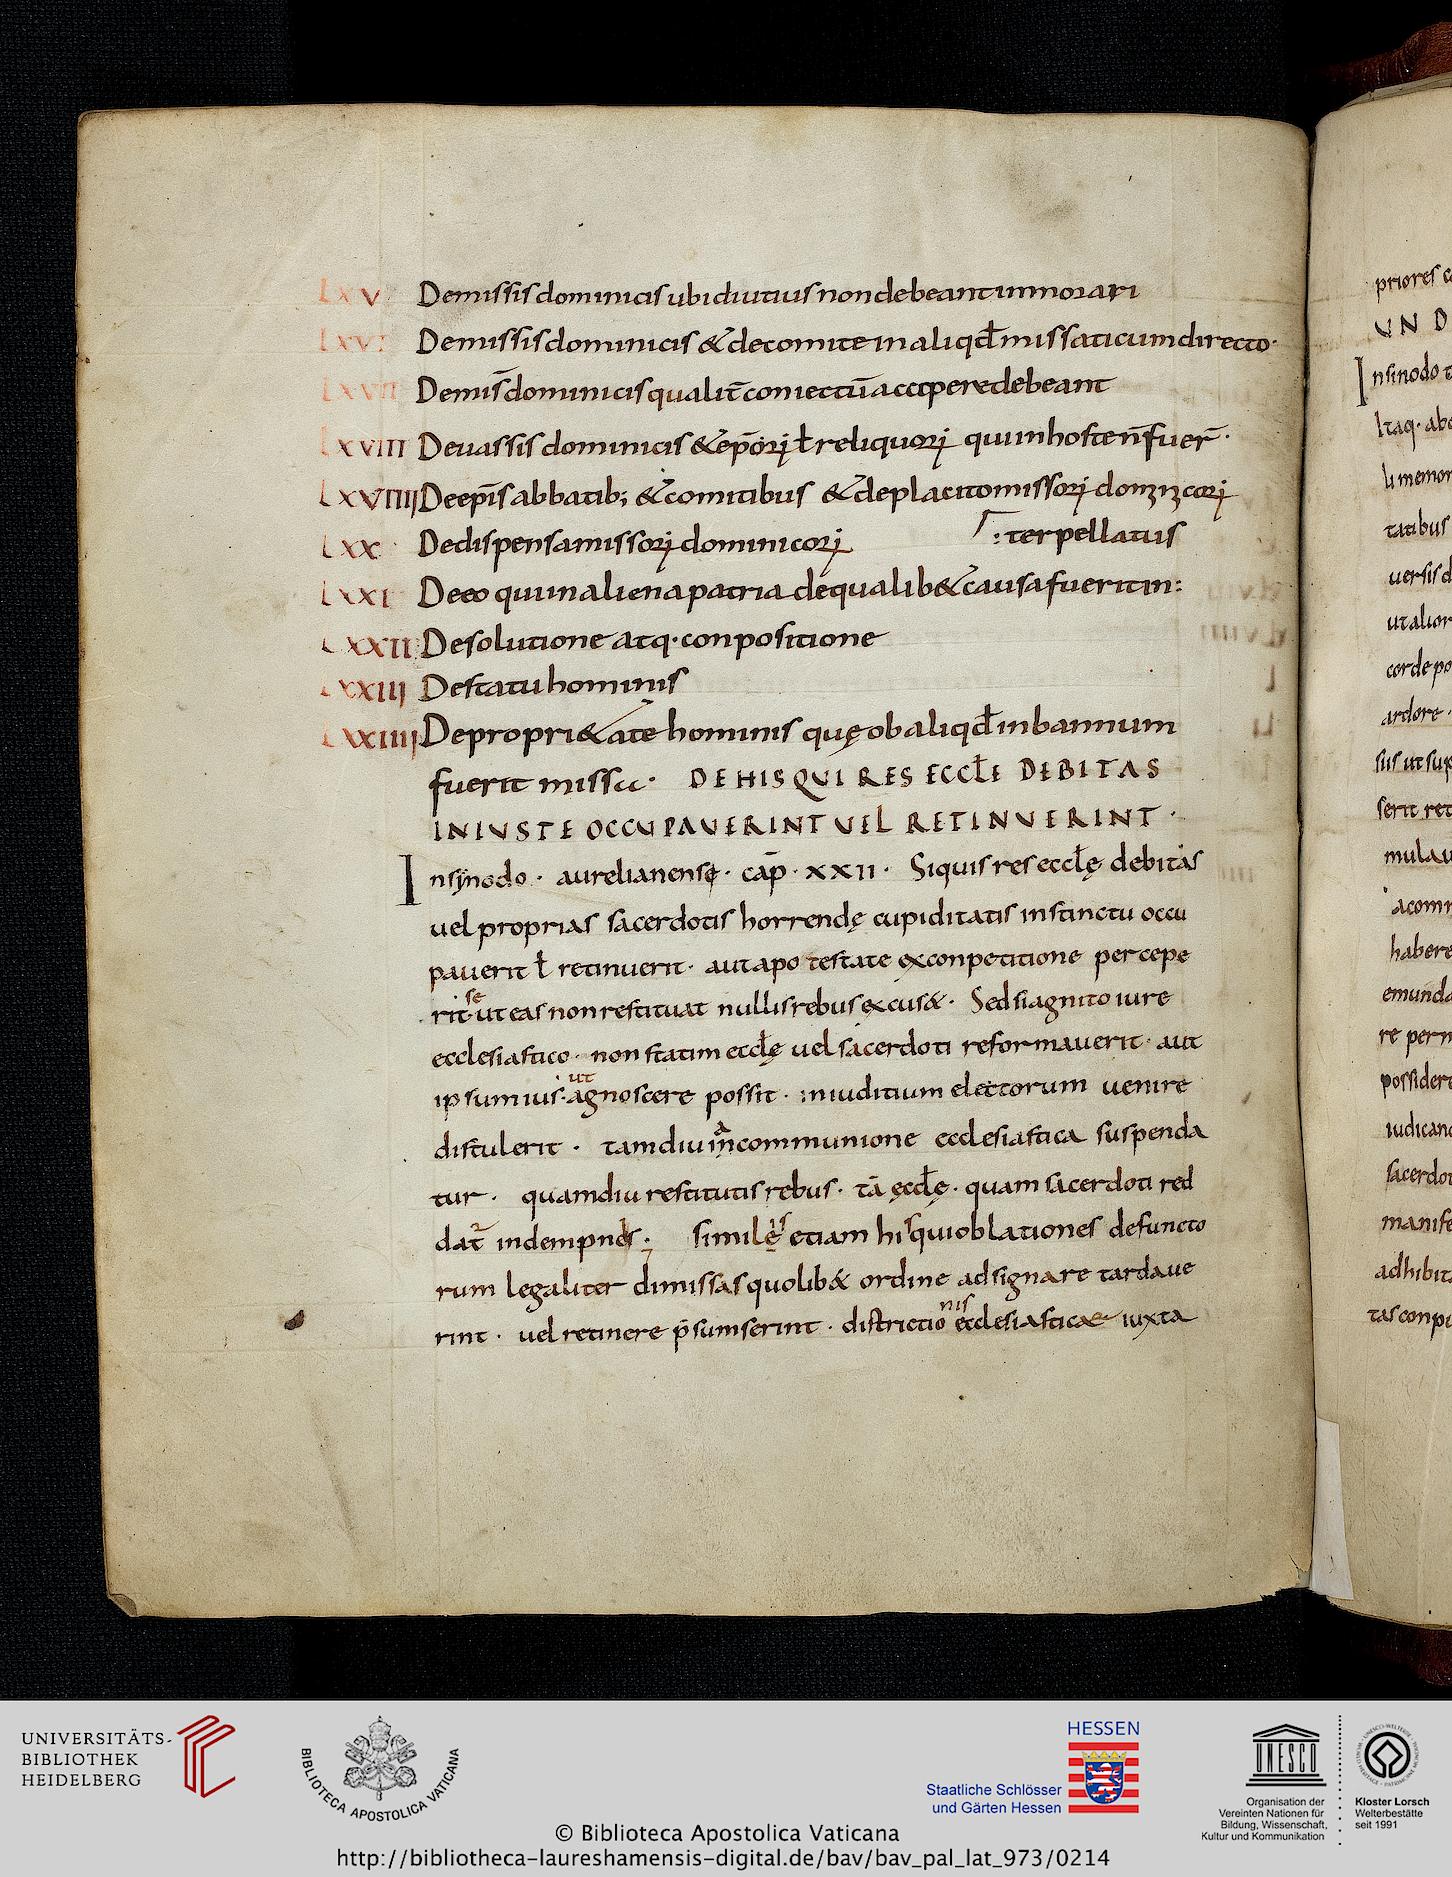 LXV Demissis dominicis ubi diutius non debeant inmorari
LXVI Demissis dominicis & decomite in aliqđ missaticum directo·
LXVII Demis̄ dominicis qualit̄ coniectū accipere debeant
LXVIII Deuassis dominicis & ep̄oꝝ ł reliquoꝝ qui in hoste n̄ fuer̄·
LXVIIII De ep̄is abbatib; & comitibus & de placito missoꝝ dominicoꝝ
LXX Dedispensa missoꝝ dominicoꝝ :terpellatus
LXXI De eo qui in aliena patria de qualib& causa fuerit in:
LXXII De solutione atq· conpositione
LXXIII De statu hominis
LXXIIII De propri&ate hominis quę ob aliqđ in bannum
fuerit missa· DE HIS QUI RES ECCŁE DEBITAS
INIUSTE OCCUPAUERINT UEL RETINUERINT·
In synodo · aurelianense · cap̄ · xxii · Siquis res eccłę debitas
uel proprias sacerdotis horrendę cupiditatis instinctu occu
pauerit ł retinuerit · aut apo testate ex conpetitione percepe
se
rit· ut eas non restituat nullis rebus excus& · Sed si agnito iure
ecclesiastico · non statim eccłę uel sacerdoti reformauerit · aut
ut
ipsum ius· agnoscere possit · in iuditium electorum uenire
distulerit · tamdiu a communione ecclesiastica suspenda
tur · quamdiu restitutis rebus · tā ęccłę · quam sacerdoti red
dat̄ indempnis · similis etiam his qui oblationes defuncto
rum legaliter dimissas quolib& ordine adsignare tardaue
nis
rint · uel retinere p̄sumserint · districtio ecclesiasticae iuxta
priores
UN D
In sinodo
Itaq· abo
li memor
tatibus
uersis d
ut alior
corde po
ardore ·
siis ut sup
serit ret
mulau
acomm
habere
emunda
re perm
possidere
iudicand
sacerdot
manife
adhibit
tas conpu
UNIVERSITÄTS-
BIBLIOTHEK
HEIDELBERG
BIBLIOTECA APOSTOLICA VATICANA
HESSEN
Staatliche Schlösser
und Gärten Hessen
UNESCO
Organisation der
Vereinten Nationen für
Bildung, Wissenschaft,
Kultur und Kommunikation
Kloster Lorsch
Welterbestätte
seit 1991
© Biblioteca Apostolica Vaticana
http://bibliotheca-laureshamensis-digital.de/bav/bav_pal_lat_973/0214